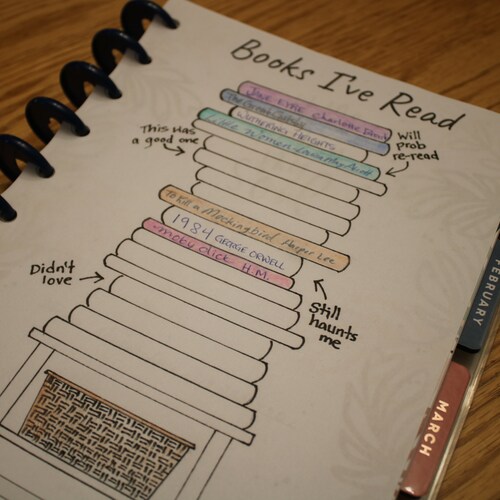 Books I've Read
JANE EYRE Charlotte Brontë
The Great Gatsby
WUTHERING HEIGHTS
Little Women Louisa May Alcott
This was
a good one
Will
prob
re-read
To Kill a Mockingbird Harper Lee
1984 GEORGE ORWELL
moby dick H.M.
Didn't
love
Still
haunts
me
FEBRUARY
MARCH